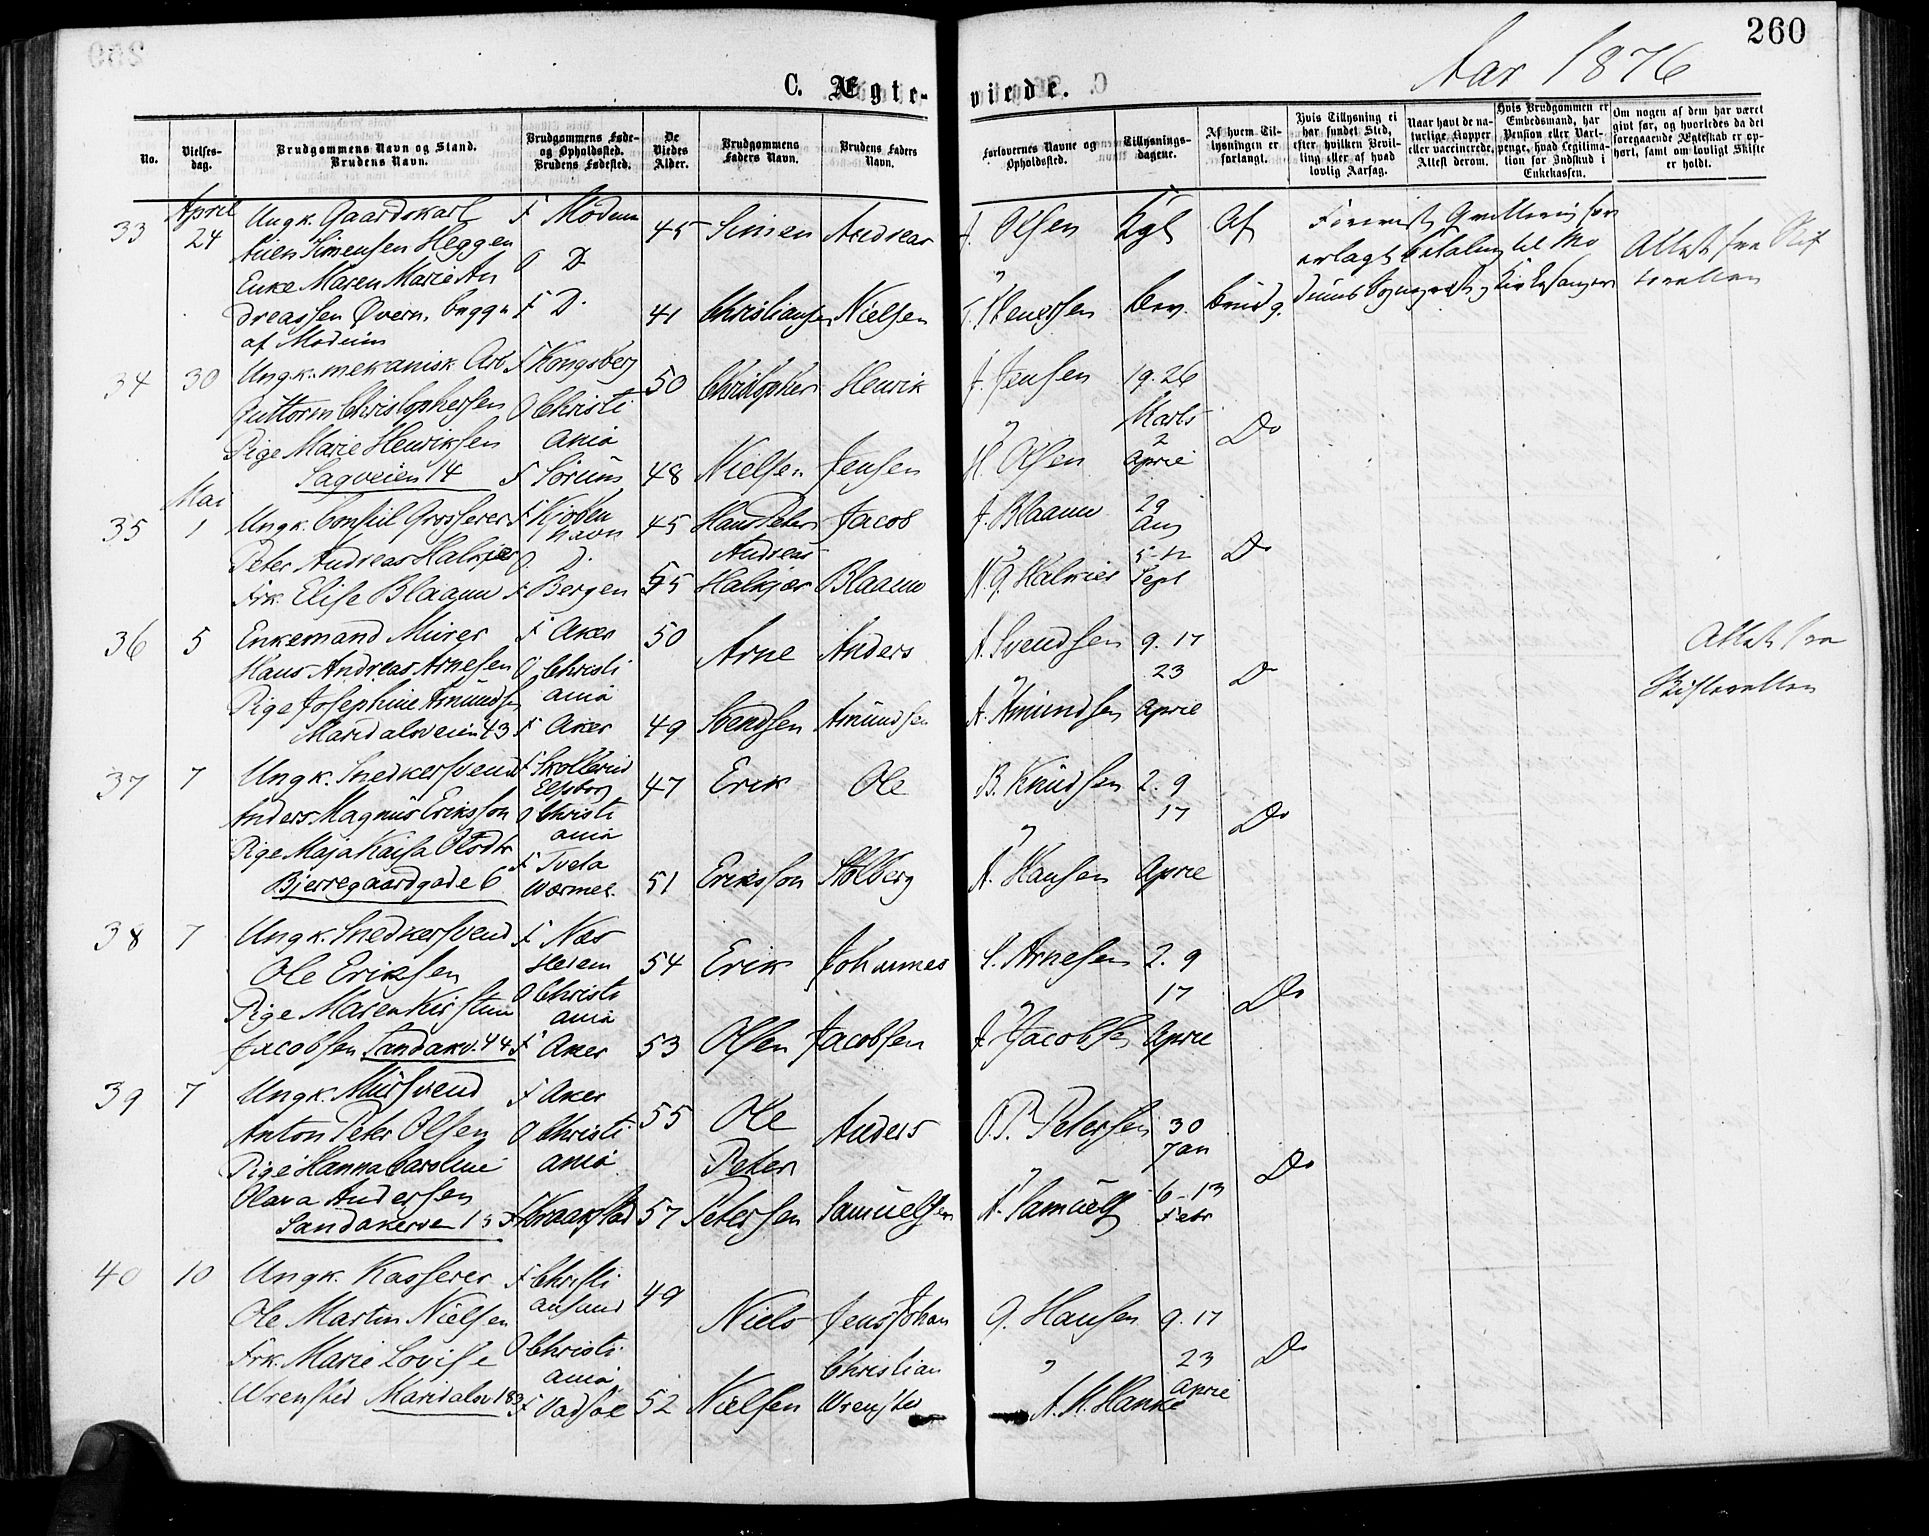 260
Aar 1876
C. Ægte-
viede.
No.
Vielses-
dag.
Brudgommens Navn og Stand.
Brudens Navn.
Brudgommens Føde-
og Opholdssted.
Brudens Fødested.
De
Viedes
Alder.
Brudgommens
Faders Navn.
Brudens Faders
Navn.
Forlovernes Navne og
Opholdssted.
Tillysnings-
dagene.
Af hvem Til-
lysningen er
forlangt.
Hvis Tillysning ei
har fundet Sted,
efter hvilken Bevil-
ling eller af hvad
lovlig Aarsag.
Naar havt de na-
turlige Kopper
eller vaccinerede,
Attest derom.
Hvis Brudgommen er
Embedsmand, har
Pension eller Vart-
penge, hvad Legitima-
tion for Indskud i
Enkekassen.
Om nogen af dem har været
givt før, og hvorledes da det
foregaaende Ægteskab er op-
hørt, samt om lovligt Skifte
er holdt.
33
April
24
Ungk. Gaardskarl
Simensen Heggen
Enke Maren Marie An
dreassen Øvern, begge
af Modum
F Modum
O D.
F D.
45
41
Simen
Christiansen
Andreas
Nielsen
J. Olsen
"
Kgl
bev.
Af
brudg.
Forevist Qvittering for
erlagt betaling til Mo
Attest fra Skif
teretten
34
30
Ungk. mekanisk Arb
Guttorm Christophersen
Pige Marie Henriksen
Sagveien 14
F Kongsberg
O Christi
ania
F Sørum
50
48
Christopher
Nielsen
Henrik
Jensen
J. Jensen
"
H. Olsen
19. 26
Marts
2
April
Do
35
Mai
1
Ungk. Consul Grosserer
Peter Andreas Halkier
Frk. Elise Blaauw
F Kjøben
havn
O D.
F Bergen
45
55
Hans Peter
Andreas
Halkjær
Jacob
Blaauw
J. Blaauw
"
N. G Halkier
29
Aug
5-12
Sept
Do
36
5
Enkemand Murer
Hans Andreas Arnesen
Pige Josephine Amundsen
Maridalsveien 43
F Aker
O Christi
ania
F Aker
50
49
Arne
Svendsen
Anders
Amundsen
A. Svendsen
"
A. Amundsen
9. 17
23
April
Do
Attest fra
Skifteretten
37
7
Ungk. Snedkersvend
Anders Magnus Eriksson
Pige Maja Kaisa Olsdtr
Bjerregaardgade 6
F
Elfsborg
O Christi
ania
F Tveta
Wermel.
47
51
Erik
Eriksson
Ole
Stolberg
B. Knudsen
"
A. Hansen
2. 9
17
April
Do
38
7
Ungk. Snedkersvend
Ole Eriksen
Pige Maren Kirstine
Jacobsen Sandakv. 44
F Næs
Hedem
O Christi
ania
F Aker
54
53
Erik
Olsen
Johannes
Jacobsen
S. Arnesen
"
J. Jacobsen
2. 9
17
April
Do
39
7
Ungk. Mursvend
Anton Peter Olsen
Pige Hanna Caroline
Olava Andersen
Sandakerve 13
F Aker
O Christi
ania
F Kraakstad
55
57
Ole
Peter
Petersen
Anders
Samuelsen
O. P. Petersen
"
A. Samuels
30
Jan
6-13
Febr
Do
40
10
Ungk. Kasserer
Ole Martin Nielsen
Frk. Marie Lovise
Wrensted Maridalsv 183
F Christi
ansund
O Christi
ania
F Vadsøe
49
52
Niels
Nielsen
Jens Johan
Christian
Wrensted
G. Hansen
"
A. M. Hanke
9. 17
23
April
Do